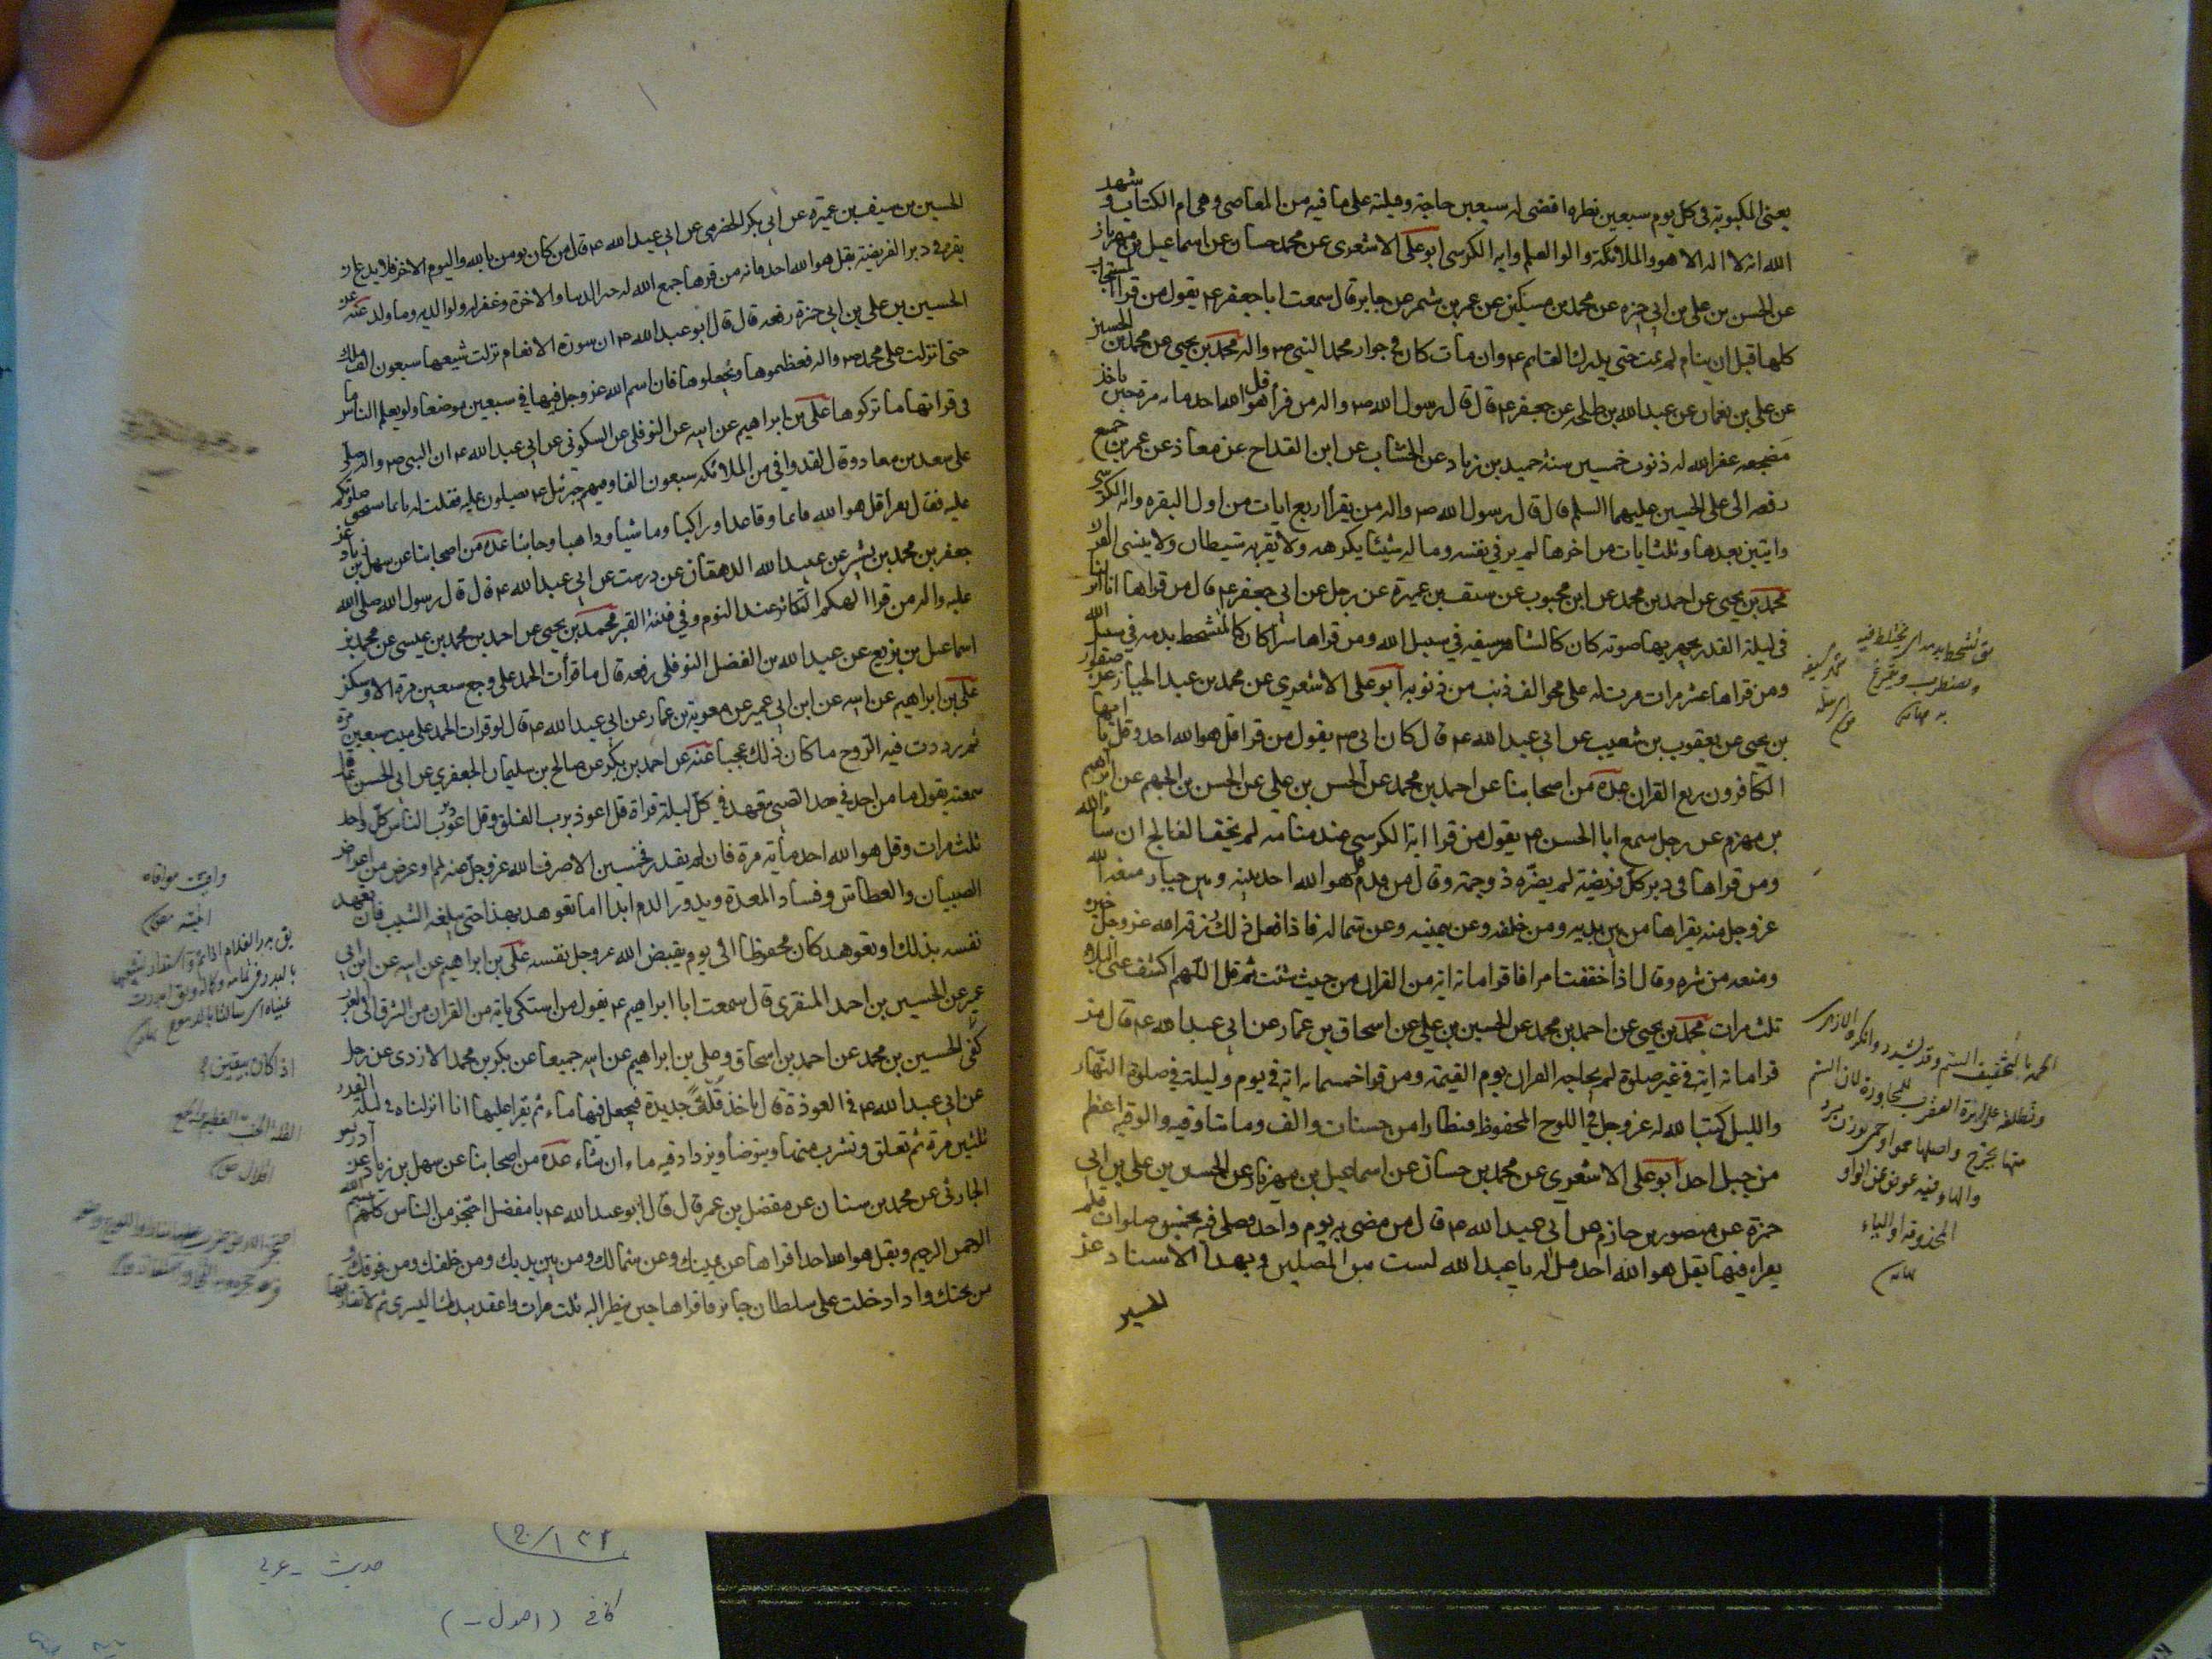 يعنى المكبوبة فى كل يوم سبعين نظره اقضى له سبعين حاجة وقبلته على ما فيه من المعاصى وهى ام الكتاب و شهد
الله انه لا اله الا هو والملائكة والوا العلم واية الكرسى ابو على الاشعرى عن محمد حسان عن اسماعيل بن مهران
عن الحسن بن على بن ابى حمزه عن محمد بن مسكين عن عمر بن شمر عن جابر قال سمعت ابا جعفر ع يقول من قرا المسبحات
كلها قبل ان ينام لم يمت حتى يدرك القايم ع وان مات كان فى جوار محمد النبى ص واله محمد بن يحيى عن محمد بن الحسين
عن على بن نعمان عن عبد الله بن طلحه عن جعفر ع قال قال رسول الله ص واله من قرأ قل هو الله احد مائه مرة حين ياخذ
مضجعه غفر الله له ذنوب خمسين سنة حميد بن زياد عن الخشاب عن ابن القداح عن معاذ عن عمر بن جميع
رفعه الى على الحسين عليهما السلم قال قال رسول الله ص واله من يقرأ اربع ايات من اول البقره واية الكرسى
وايتين بعدها وثلث ايات من اخرها لم ير فى نفسه وماله شيئا يكرهه ولا يقربه شيطان ولا ينسى القران
محمد بن يحيى عن احمد بن محمد عن ابن محبوب عن سيف بن عميرة عن رجل عن ابى جعفر ع قال من قراها انا انزلنا
فى ليلة القدر يجهر بها صوته كان كالشاهر سيفه فى سبيل الله ومن قراها سرا كان كالمتشحط بدمه فى سبيل الله
ومن قراها عشر مرات مرت له على محو الف ذنب من ذنوبه ابو على الاشعرى عن محمد بن عبد الجبار عن صفوان
بن يحيى عن يعقوب بن شعيب عن ابى عبد الله ع قال كان ابى ص يقول من قرا قل هو الله احد و قل يا ايها
الكافرون ربع القران عدة من اصحابنا عن احمد بن محمد عن الحسن بن على عن الحسن بن الجهم عن ابراهيم
بن مهزم عن رجل سمع ابا الحسن ع يقول من قرا اية الكرسى عند منامه لم يخف الفالج ان شا والله
ومن قراها فى دبر كل فريضة لم يضره ذو حمة وقال من قدم قل هو الله احد بينه وبين جبار منعه الله
عز وجل منه يقراها من بين يديه ومن خلفه وعن يمينه وعن شماله فاذا فعل ذلك رزقه الله عز وجل خيره
ومنعه من شره وقال اذا خفت امرا فاقرا مائه اية من القران من حيث شئت ثم قل اللهم اكشف عنى البلاء
ثلث مرات محمد بن يحيى عن احمد بن محمد عن الحسين بن على عن اسحاق بن عمار عن ابى عبد الله ع قال من
قرا مائه اية فى غير صلوة لم يحاجه القران يوم القيمة ومن قرا خمسمائه اية فى يوم وليلة فى صلوة النهار
والليل كتب الله له عز وجل فى اللوح المحفوظ قنطارا من حسنات والف ومائتا وقيه والوقيه اعظم
من جبل احد ابو على الاشعرى عن محمد بن حسان عن اسماعيل بن مهران عن الحسين بن على بن ابى
حمزة عن منصور بن حازم عن ابى عبد الله ع قال من مضى به يوم واحد فصلى فيه بخمس صلوات فلم
يقراء فيها بقل هو الله احد قيل له يا عبد الله لست من المصلين وبهذا الاسناد عن
الحسين
الحسين بن سيف بن عميرة عن ابى بكر الحضرمى عن ابى عبد الله ع قال من كان يومن بالله واليوم الاخر فلا يدع ان
يقرء فى دبر الفريضة بقل هو الله احد فانه من قراها جمع الله له خير الدنيا والاخرة وغفر له ولوالديه وما ولد عنه عن
الحسين بن على بن ابى حمزة رفعه قال قال ابو عبد الله ع ان سورة الانعام نزلت شيعها سبعون الف ملك
حتى انزلت على محمد ص واله فعظموها وبجلوها فان اسم الله عز وجل فيها فى سبعين موضعا ولو يعلم الناس ما
فى قراتها ما تركوها على بن ابراهيم عن ابيه عن النوفلى عن السكونى عن ابى عبد الله ع ان النبى ص واله صلى
على سعد بن معاد وقال لقد وافى من الملائكه سبعون الفا وفيهم جبرئيل ع يصلون عليه فقلت له يا بما استحق صلوتكم
عليه فقال بقرأ قل هو الله قائما وقاعدا وراكبا وماشيا وداهبا وجائيا عدة من اصحابنا عن سهل بن زياد عن
جعفر بن محمد بن بشير عن عبيد الله الدهقان عن درست عن ابى عبد الله ع قال قال رسول الله صلى الله
عليه واله من قرا الهكم التكاثر عند النوم وقى فتنة القبر محمد بن يحيى عن احمد بن محمد بن عيسى عن محمد بن
اسماعيل بن بزيع عن عبد الله بن الفضل النوفلى رفعه قال ما قرأت الحمد على وجع سبعين مرة الا وسكن
على بن ابراهيم عن ابيه عن ابن ابى عمير عن معوية بن عمار عن ابى عبد الله ع قال لو قرات الحمد على ميت سبعين مرة
ثم رددت فيه الروح ما كان ذلك عجبا عنه عن احمد بن بكر عن صالح بن سليمان الجعفرى عن ابى الحسن ع قال
سمعته يقول ما من احد فى حد الصبى يتعهد فى كل ليلة قراة قل اعوذ برب الفلق وقل اعوذ برب الناس كل واحد
ثلث مرات وقل هو الله احد مأية مرة فان لم يقدر فخمسين الا صرف الله عز وجل عنه لمم او عرض من اعراض
الصبيان والعطاش وفساد المعدة وبدور الدم ابدا ما تعوهد بهذا حتى يبلغه الشيب فان تعهد
نفسه بذلك او تعوهد كان محفوظا الى يوم يقبض الله عز وجل نفسه على بن ابراهيم عن ابيه عن ابن ابى
عمير عن الحسين بن احمد المنقرى قال سمعت ابا ابراهيم ع يقول من استكفى باية من القران من الشرق الى الغرب
كفى الحسين بن محمد عن احمد بن اسحاق وعلى بن ابراهيم عن ابيه جميعا عن بكر بن محمد الازدى عن رجل
عن ابى عبد الله ع فى العوذة قال تاخذ قلة جديدة فيجعل فيها ماء ثم يقرا عليها انا انزلناه فى ليلة القدر
ثلثين مرة ثم تعلق وتشرب منها ويتوضأ ويزداد فيه ماء ان شاء عدة من اصحابنا عن سهل بن زياد عن ادريس
الحارثى عن محمد بن سنان عن مفضل بن عمر قال قال ابو عبد الله ع يا مفضل احتجز من الناس كلهم بسم الله
الرحمن الرحيم وبقل هو الله احد اقراها عن يمينك وعن شمالك ومن بين يديك ومن خلفك ومن فوقك و
من تحتك واذا دخلت على سلطان جائر فاقراها حين ينظر اليه ثلث مرات واعقد بيدك اليسرى ثم لا تفارقها
اذا كان بيقين
حديث - عربى
كافى (اصول -)